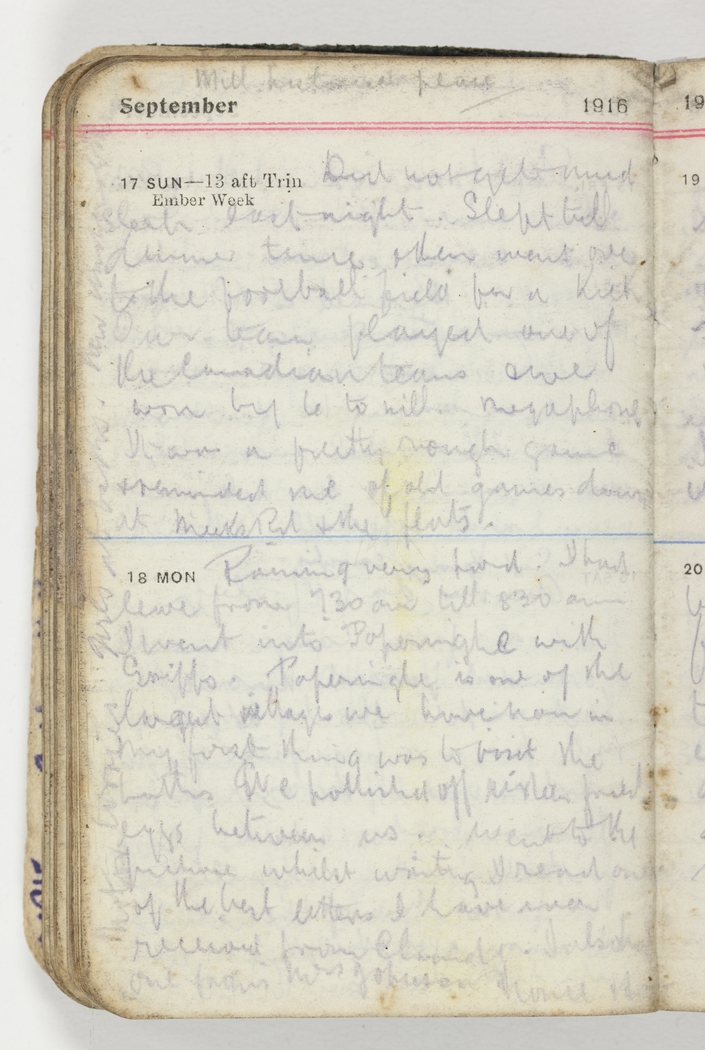 Mill historical place
September 1916
17 SUN—13 aft Trin Did not get much
Ember Week
sleep last night. Slept till
dinner time then went over
to the football field for a kick
Our team played one of
the Canadian teams & we
won by 6 to nill. megaphone
It was a pretty rough game
& reminded me of old games down
at Meeks Rd & the flats.
18 MON Raining very hard. I had
leave from 730 am till 830
I went into Poperinghe with
Griffs. Poperinghe is one of the
largest villages we have been in
My first thing was to visit the
baths We polished off fried
eggs between us. went to the
picture whilst waiting I read one
of the best letters I have ever
received from I also had
one from Mrs Johnson
19
20